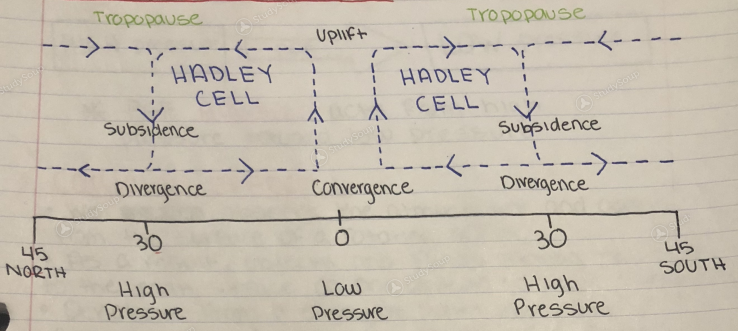 Tropopause
Tropopause
Uplift
HADLEY
CELL
HADLEY
CELL
Subsidence
Subsidence
Divergence
Convergence
Divergence
45
NORTH
30
0
30
45
SOUTH
High
Pressure
Low
Pressure
High
Pressure